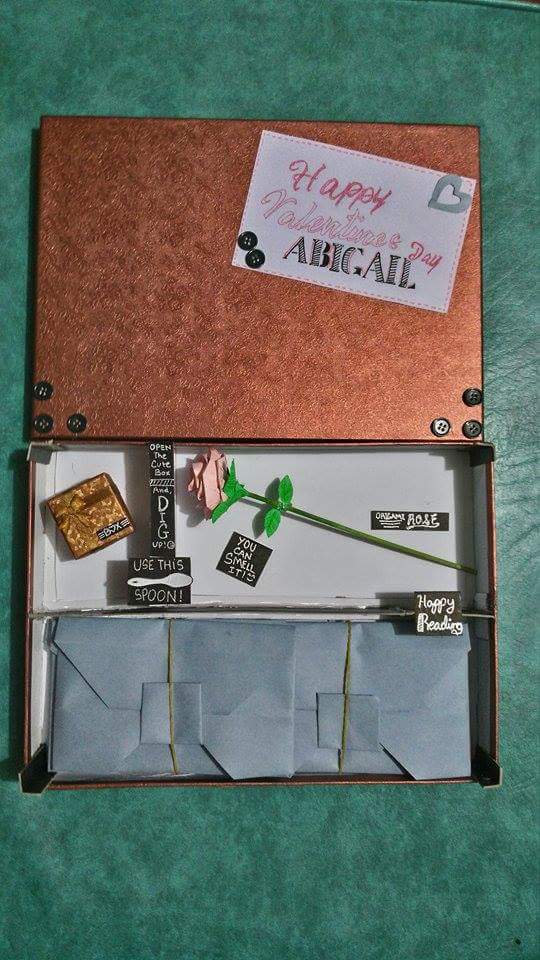 Happy
Valentines Day
ABIGAIL
OPEN
The
Cute
Box
And,
DIG
UP!
BOX
USE THIS
SPOON!
YOU
CAN
SMELL
IT!
ORIGAMI ROSE
Happy
Reading